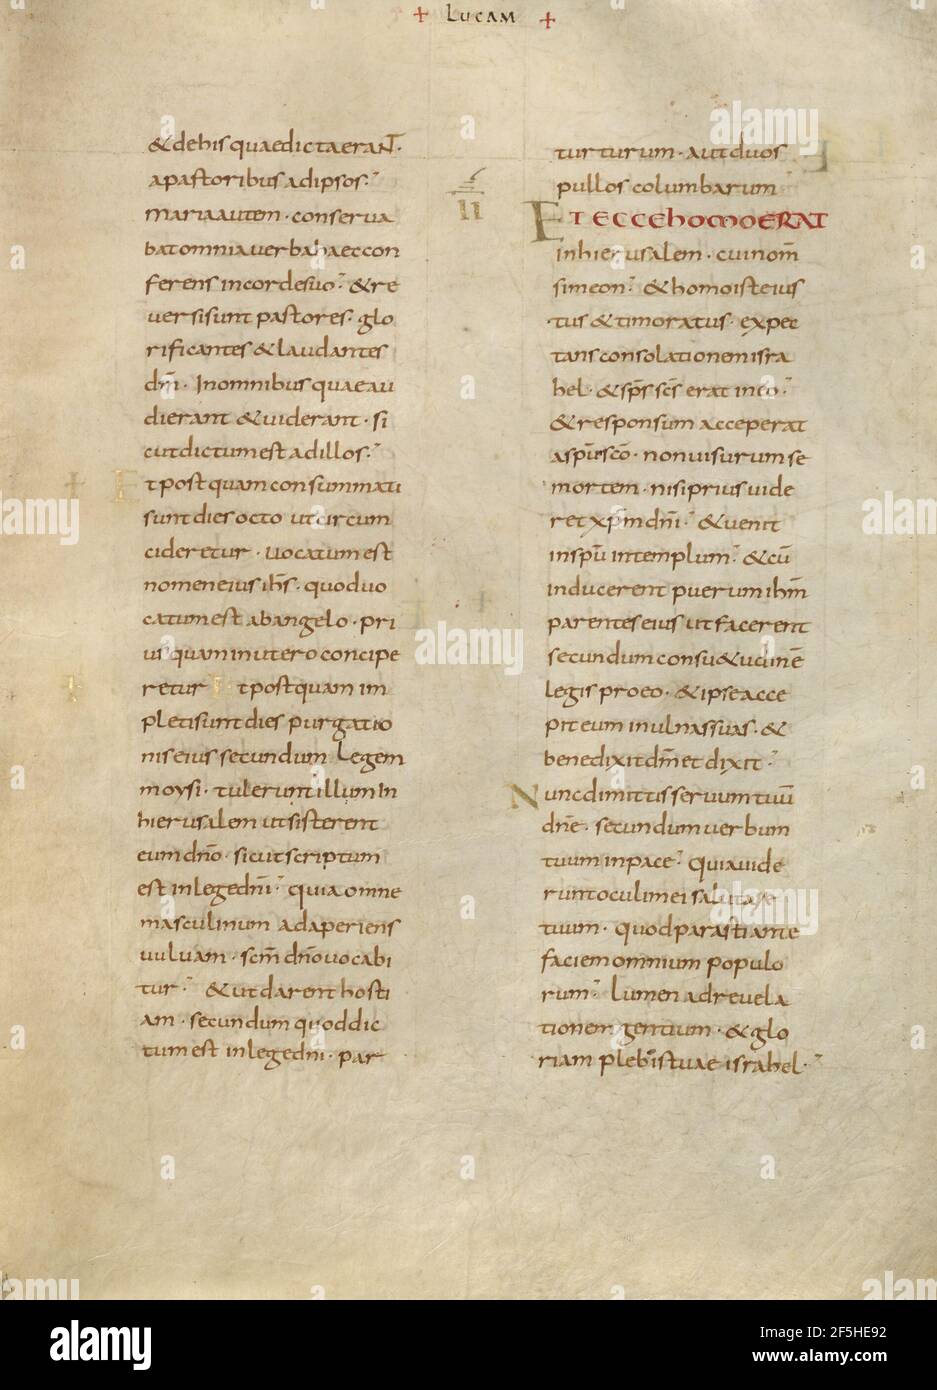 + LUCAM +
& dehis quaedicta eraNT·
apastoribus adipsos·
maria autem · conserva
bat omnia verba haec con
ferens in corde suo · & re
versi sunt pastores · glo
rificantes & laudantes
dm̄ · In omnibus quae au
dierant & viderant · si
cut dictum est ad illos ·
Et postquam consummati
sunt dies octo ut circum
cideretur · vocatum est
nomen eius ihs̄ · quod vo
catum est ab angelo · pri
us quam in utero concipe
retur Et postquam im
pleti sunt dies purgatio
nis eius secundum Legem
moysi · tulerunt illum In
hierusalem ut sisterent
eum dn̄o · sicut scriptum
est in lege dn̄i · quia omne
masculinum adaperiens
vulvam · scm̄ dn̄o vocabi
tur · & ut darent hosti
am · secundum quod dic
tum est in lege dn̄i · par
II
turturum · aut duos
pullos columbarum
ET ECCE homo ERAT
in hierusalem · cui nom̄
simeon · & homo iste ius
tus & timoratus · expec
tans consolationem isra
hel · & sp̄s sc̄s erat in eo ·
& responsum acceperat
asp̄u sc̄o · non visurum se
mortem · nisi prius vide
ret xp̄m dn̄i · & venit
in sp̄u in templum · & cū
inducerent puerum ihm̄
parentes eius ut facerent
secundum consu&udinē
legis pro eo · & ipse acce
pit eum in ulnas suas · &
benedixit dm̄ et dixit ·
Nunc dimittis servum tuū
dn̄e · secundum verbum
tuum in pace · Quia vide
runt oculi mei salutare
tuum · quod parasti ante
faciem omnium populo
rum · Lumen ad revela
tionem gentium · & glo
riam plebis tuae israhel ·
alamy
alamy
Image ID: 2F5HE92
www.alamy.com